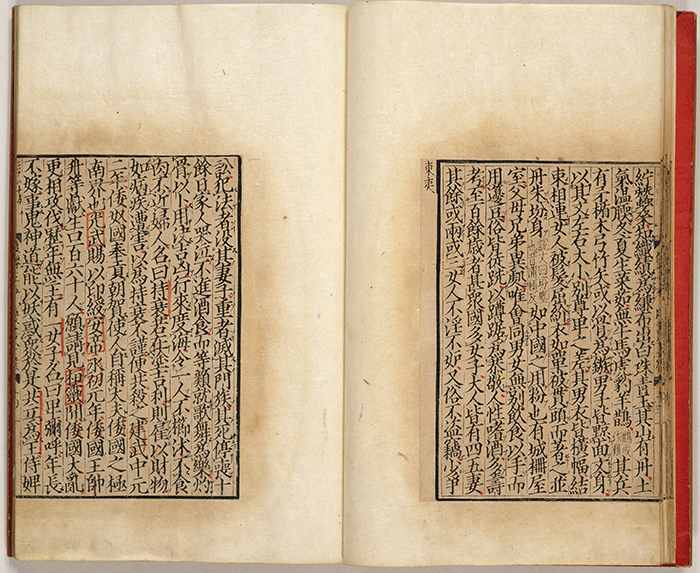 紵蠶桑知織績為縑布出白珠青玉其山有丹土
氣溫暖冬夏生菜茹無牛馬虎豹羊鵲鵲或作雞其兵
有矛楯木弓竹矢或以骨為鏃男子皆黥面文身
以其文左右大小別尊卑之差其男衣皆橫幅結
束相連女人被髮屈紒衣如單被貫頭而著之並
丹朱坋身如中國之用粉也有城柵屋
室父母兄弟異處唯會同男女無別飲食以手而
用籩豆俗皆徒跣以蹲踞為恭敬人性嗜酒多壽
考至百餘歲者甚眾國多女子大人皆有四五妻
其餘或兩或三女人不淫不妒又俗不盜竊少爭
東夷
訟犯法者沒其妻子重者滅其門族其死停喪十
餘日家人哭泣不進酒食而等類就歌舞為樂灼
骨以卜用決吉凶行來度海令一人不櫛沐不食
肉不近婦人名曰持衰若在塗吉利則雇以財物
如病疾遭害以為持衰不謹便共殺之建武中元
二年倭奴國奉貢朝賀使人自稱大夫倭國之極
南界也光武賜以印綬安帝永初元年倭國王帥
升等獻生口百六十人願請見桓靈間倭國大亂
更相攻伐歷年無主有一女子名曰卑彌呼年長
不嫁事鬼神道能以妖惑眾於是共立為王侍婢